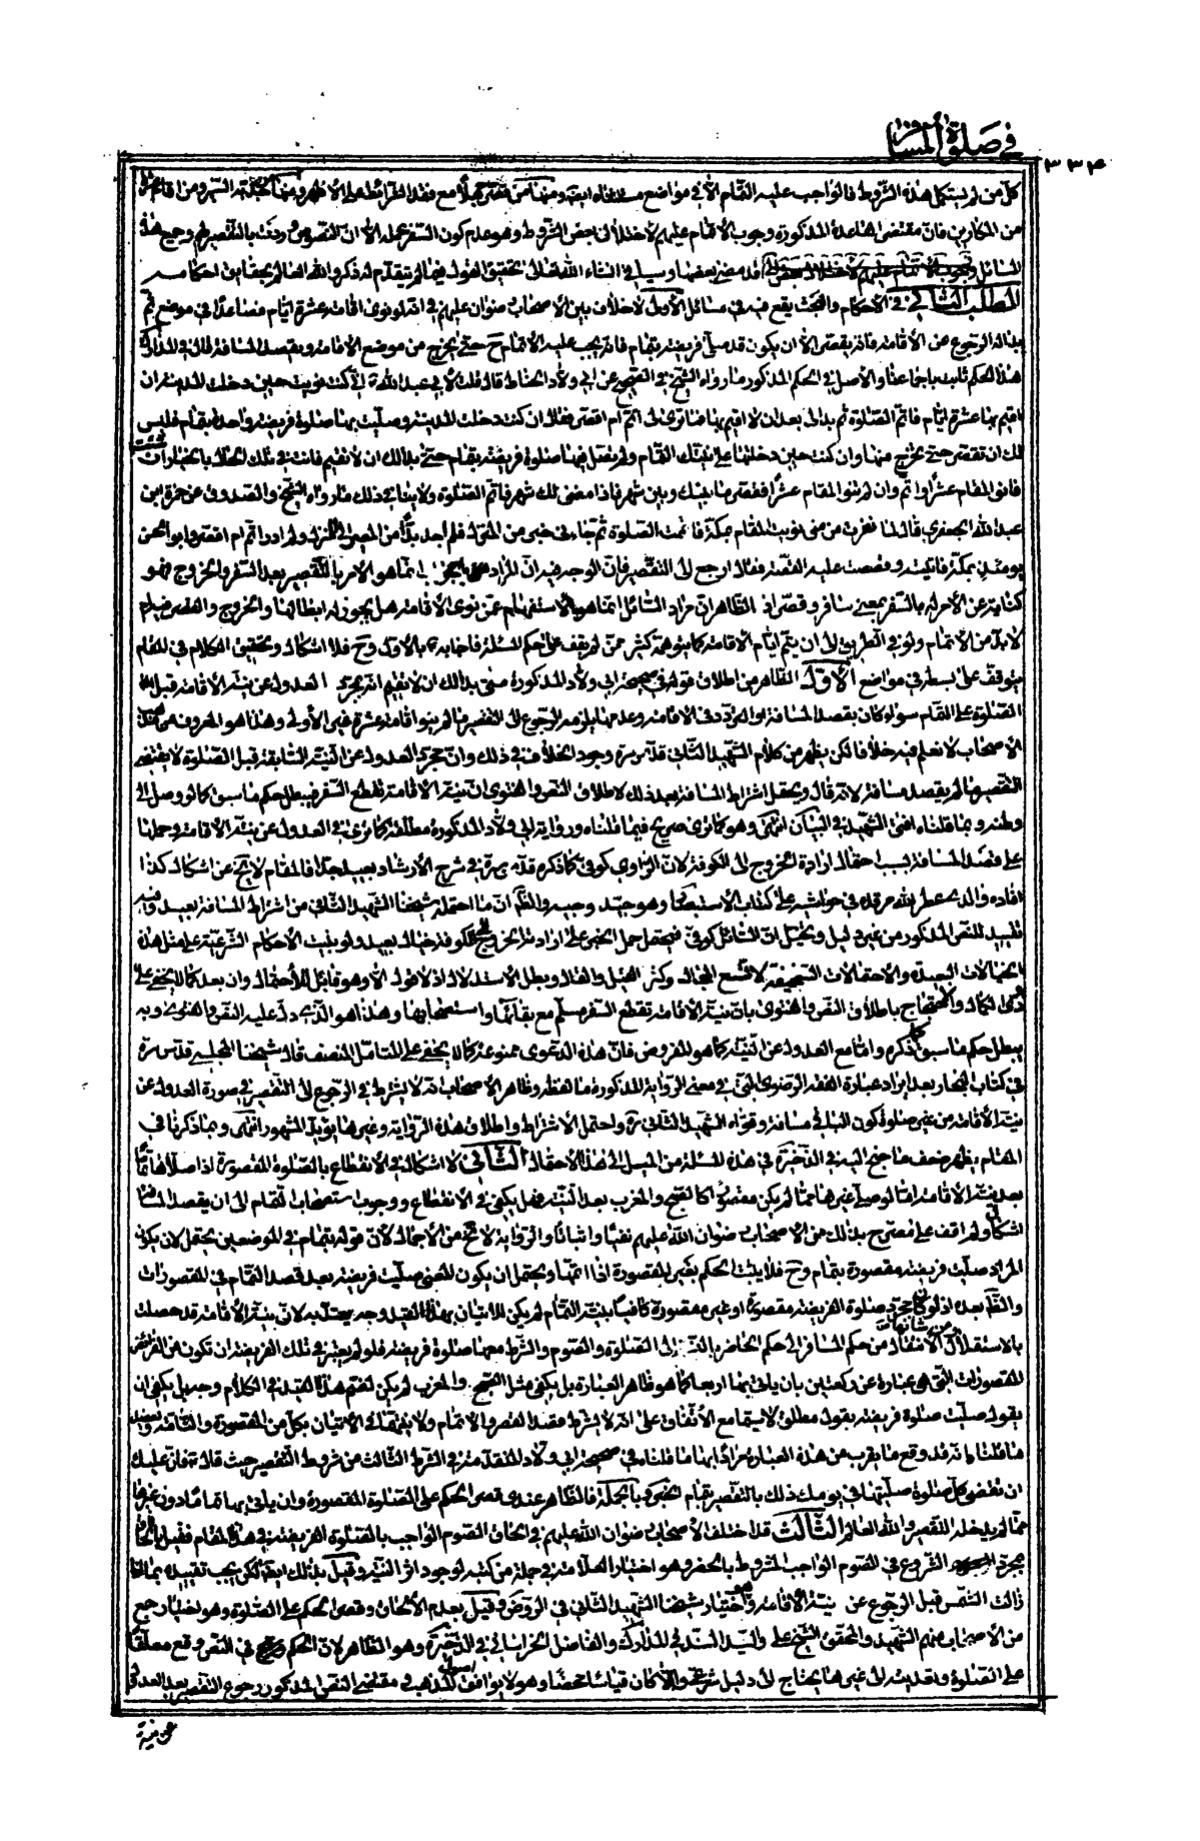 في صلوة المسافر
٣٣٤
كل من لم يستكمل هذه الشروط فالواجب عليه التمام الا في مواضع
من المكارين فان مقتضى القاعدة المذكورة وجوب الاتمام عليهم لاختلال بعض الشروط وهو عدم كون السفر عمله الا ان النصوص وردت بالتقصير لهم وجميع هذه
المسائل قد مضى بعضها وسيأتي انشاء الله تعالى تحقيق القول فيما لم يتقدم له ذكر والله العالم بحقايق احكامه
المطلب الثاني في الاحكام والبحث يقع فيه في مسائل الاولى لا خلاف بين الاصحاب رضوان الله عليهم في انه لو نوى اقامة عشرة ايام فصاعدا في موضع ثم
بدا له الرجوع عن الاقامة فانه يقصر الا ان يكون قد صلى فريضة بتمام فانه يجب عليه الاتمام ح حتى يخرج من موضع الاقامة ويقصد المسافة قال في المدارك
هذا الحكم ثابت باجماعنا والاصل في الحكم المذكور ما رواه الشيخ في الصحيح عن ابي ولاد الحناط قال قلت لابي عبد الله ع اني كنت نويت حين دخلت المدينة ان
اقيم بها عشرة ايام فاتم الصلوة ثم بدا لي بعد ان لا اقيم بها فما ترى لي اتم ام اقصر فقال ان كنت دخلت المدينة وصليت بها صلوة فريضة واحدة بتمام فليس
لك ان تقصر حتى تخرج منها وان كنت حين دخلتها على نيتك التمام ولم تصل فيها صلوة فريضة بتمام حتى بدا لك ان لا تقيم فانت في تلك الحال بالخيار ان شئت
فانو المقام عشرا واتم وان لم تنو المقام عشرا فقصر ما بينك وبين شهر فاذا مضى لك شهر فاتم الصلوة ولا ينافي ذلك ما رواه الشيخ والصدوق عن حمزة بن
عبد الله الجعفري قال لما نفرت من منى نويت المقام بمكة فاتممت الصلوة ثم جاءني خبر من المنزل فلم اجد بدا من المصير الى المنزل ولم ادر اتم ام اقصر وابو الحسن
يومئذ بمكة فاتيته وقصصت عليه القصة فقال ارجع الى التقصير فان الوجه فيه ان المراد انما هو الامر بالتقصير بعد السفر والخروج فهو
كناية عن الامر له بالسفر بمعنى سافر وقصر اذ الظاهر ان مراد السائل انما هو الاستفهام عمن نوى الاقامة هل يجوز له ابطالها والخروج والقصر ام
لا بد من الاتمام ولو في الطريق الى ان يتم ايام الاقامة كما يتوهمه كثير ممن لم يقف على حكم المسئلة فاجابه ع بالاول وح فلا اشكال وتحقيق الكلام في المقام
يتوقف على بسطه في مواضع الاول الظاهر من اطلاق قوله في صحيحة ابي ولاد المذكورة حتى بدا لك ان لا تقيم انه بمجرد العدول عن نية الاقامة قبل
الصلوة على التمام سواء كان بقصد المسافة او التردد في الاقامة وعدمها يلزمه الرجوع الى التقصير ما لم ينو اقامة عشرة غير الاولى وهذا هو المعروف من
الاصحاب لا نعلم فيه خلافا لكن يظهر من كلام الشهيد الثاني قدس سره وجود الخلاف في ذلك وان مجرد العدول عن النية السابقة قبل الصلوة لا يقتضي
التقصير ما لم يقصد مسافة لانه قال ويحتمل اشتراط المسافة بعد ذلك لاطلاق النص والفتوى ان نية الاقامة تقطع السفر فيبطل حكم ما سبق كما لو وصل الى
وطنه وبما قلناه افتى الشهيد في البيان انتهى وهو كما ترى صريح فيما قلناه ورواية ابي ولاد المذكورة مطلقة كما ترى في العدول عن نية الاقامة وحملها
على قصد المسافة بسبب احتمال ارادة الخروج الى الكوفة لان الراوي كوفي كما ذكره قدس سره في شرح الارشاد بعيد جدا فالمقام لا يخ عن اشكال كذا
افاده والدي عطر الله مرقده في حواشيه على كتاب الاستبصار وهو جيد وجيه والظ ان ما احتمله شيخنا الشهيد الثاني من اشتراط المسافة بعيد وفيه
تقييد للنص المذكور من غير دليل وتخيل ان السائل كوفي فيحتمل حمل الخبر على ارادة الخروج الى الكوفة خيال بعيد ولو بنيت الاحكام الشرعية على مثل هذه
الخيالات البعيدة والاحتمالات السخيفة لاتسع المجال وكثر القيل والقال وبطل الاستدلال اذ لا قول الا وهو قابل للاحتمال وان بعد كما لا يخفى على
ذوي الكمال والاحتجاج باطلاق النص والفتوى بان نية الاقامة تقطع السفر مسلم مع بقائها واستصحابها وهذا هو الذي دل عليه النص والفتوى وبه
يبطل حكم ما سبق كما ذكره واما مع العدول عن النية كما هو المفروض فان هذه الدعوى ممنوعة كما لا يخفى على المتامل المنصف قال شيخنا المجلسي قدس سره
في كتاب البحار بعد ايراد عبارة الفقه الرضوي التي في معنى الرواية المذكورة ما لفظه وظاهر الاصحاب انه لا يشترط في الرجوع الى التقصير في صورة العدول عن
نية الاقامة من غير صلوة كون الباقي مسافة وقواه الشهيد الثاني ره واحتمل الاشتراط واطلاق هذه الرواية وغيرها يؤيد المشهور انتهى وبما ذكرنا في
المقام يظهر ضعف ما جنح اليه في الذخيرة في هذه المسئلة من الميل الى هذا الاحتمال الثاني لا اشكال في الانقطاع بالصلوة المقصورة اذا صلاها تماما
بعد نية الاقامة اما لو صلى غيرها مما لم يكن مقصورا كالصبح والمغرب بعد النية فهل يكفي في الانقطاع ووجوب استصحاب التمام الى ان يقصد المسافة
اشكال ولم اقف على مصرح بذلك من الاصحاب رضوان الله عليهم نفيا واثباتا والرواية لا تخ من الاجمال لان قوله بتمام في الموضعين يحتمل لان يكون
المراد صليت فريضة مقصورة بتمام وح فلا يثبت الحكم بغير المقصورة اذا اتمها ويحتمل ان يكون المعنى صليت فريضة بعد قصد التمام في المقصورات
والظ بعده اذ لو كان مجرد صلوة الفريضة مقصورة او غير مقصورة كافيا بنية التمام لم يكن للاتيان بهذا القيد وجه يعتد به لان نية الاقامة قد حصلت
بالاستقلال من شانها الانتقال من حكم المسافر الى حكم الحاضر بالنسبة الى الصلوة والصوم والشرط معها صلوة فريضة فلو لم يعتبر في تلك الفريضة ان تكون من الفرائض
المقصورات التي هي عبارة عن ركعتين بان ياتي بها اربعا كما هو ظاهر العبارة بل يكفي مثل الصبح والمغرب لم يكن لضم هذا القيد في الكلام وجه بل يكفي ان
يقول صليت صلوة فريضة بقول مطلق لا سيما مع الاتفاق على انه لا يشترط قصد القصر والاتمام
ما قلنا انه قد وقع ما يقرب من هذه العبارة مرادا بها ما قلناه في صحيحة ابي ولاد المتقدمة في الشرط الثالث من شروط التقصير حيث قال ع فان عليك
ان تقضي كل صلوة صليتها في يومك ذلك بالتقصير بتمام الخبر وبالجملة فالظاهر عندي قصر الحكم على الصلوة المقصورة وان ياتي بها تماما دون غيرها
مما لم يدخله التقصير والله العالم الثالث قد اختلف الاصحاب رضوان الله عليهم في الحاق الصوم الواجب بالصلوة الفريضة في هذا المقام فقيل بالحاق
مجرد الشروع في الصوم الواجب المشروط بالحضر وهو اختيار العلامة في جملة من كتبه لوجود اثر النية وقيل بذلك ايضا لكن يجب تقييده بما اذا
زالت الشمس قبل الرجوع عن نية الاقامة وهو اختيار شيخنا الشهيد الثاني في الروض وقيل بعدم الالحاق وقصر الحكم على الصلوة وهو اختيار جمع
من الاصحاب منهم الشهيد والمحقق الشيخ علي والسيد السند في المدارك والفاضل الخراساني في الذخيرة وهو الظاهر لان الحكم وقع في النص وقع معلقا
على الصلوة وتعديته الى غيرها يحتاج الى دليل شرعي والا كان قياسا محضا وهو لا يوافق اصول المذهب مقتضى النص المذكور رجوع التقصير بعد العدول
عن نية